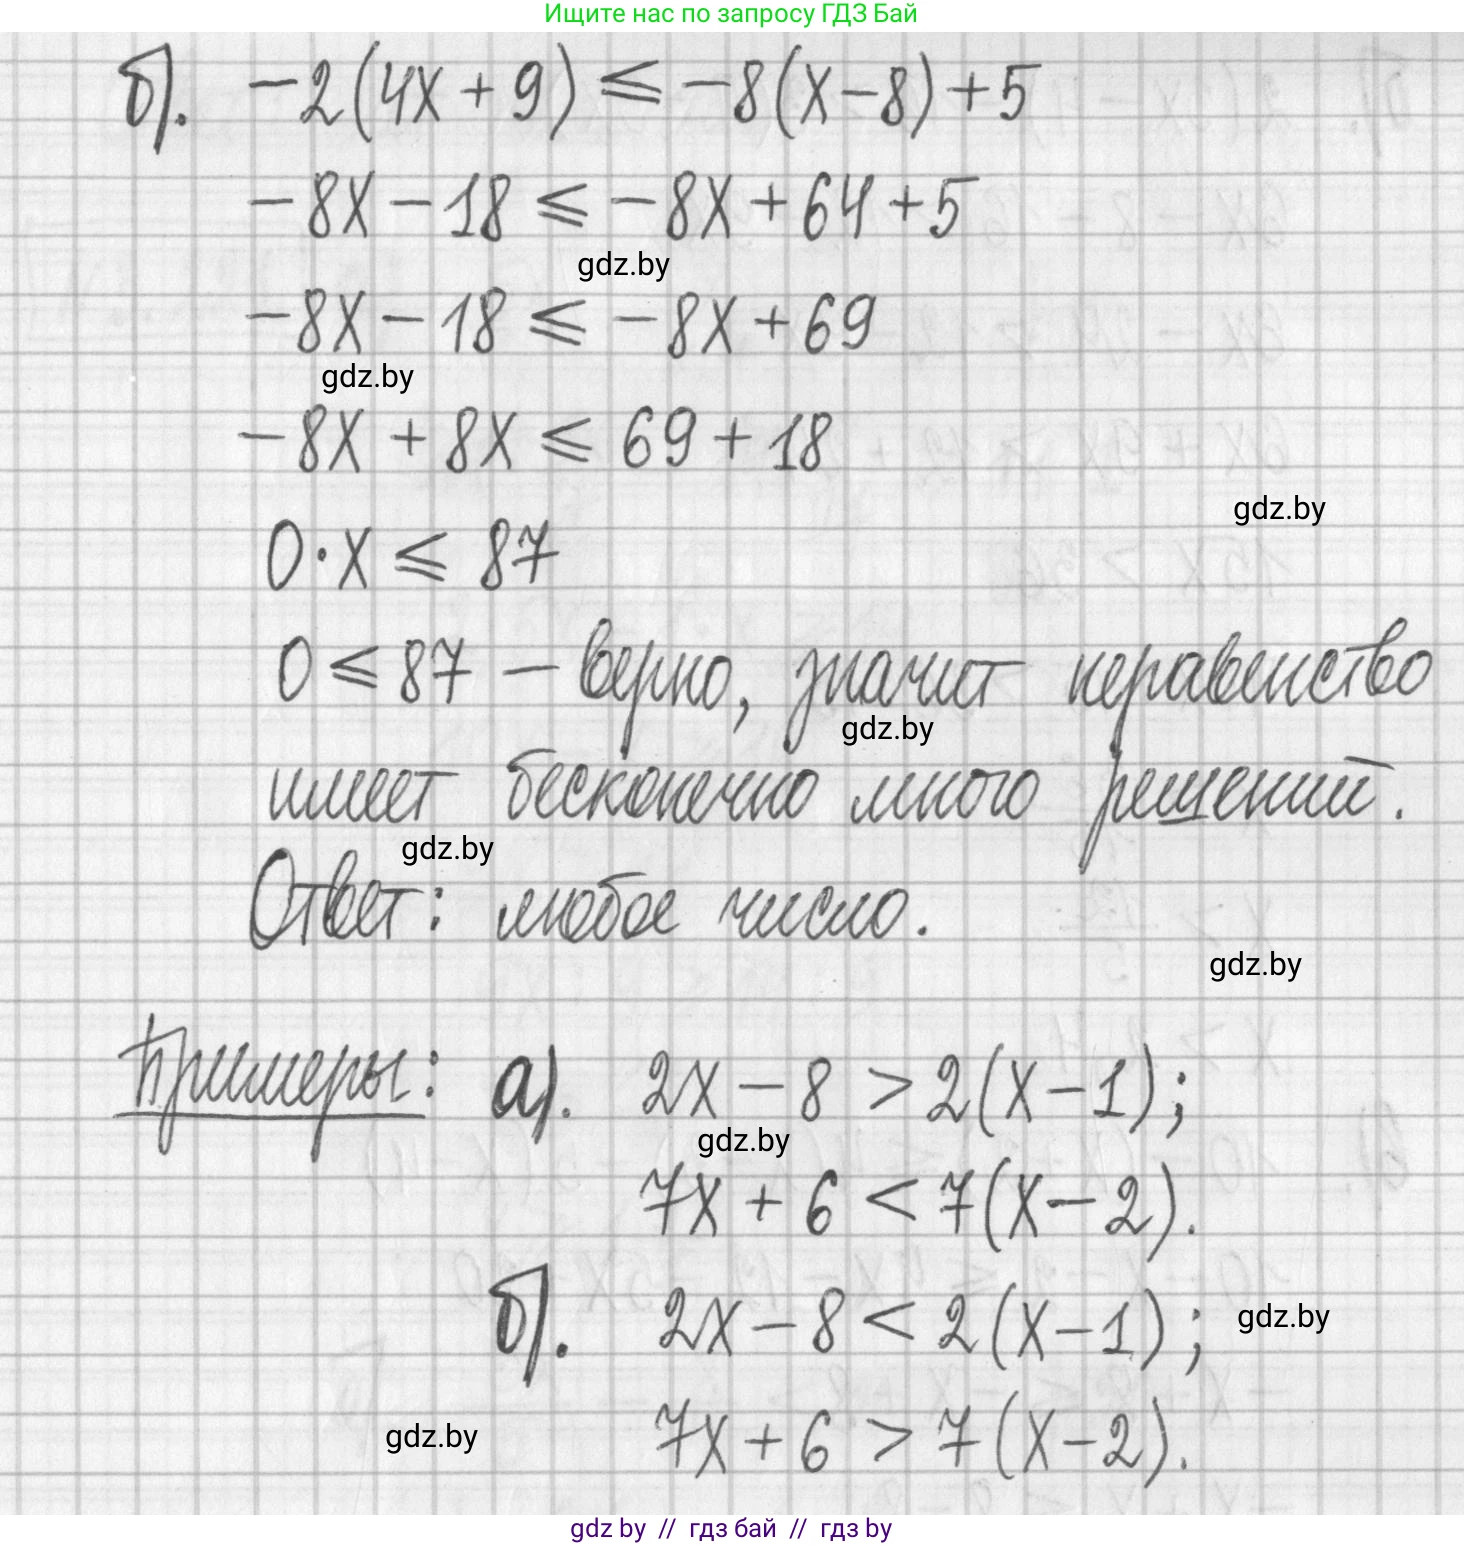 Ищите нас по запросу ГДЗ Бай
б). -2(4x+9) ⩽ -8(x-8)+5
-8x-18 ⩽ -8x+64+5
gdz.by
-8x-18 ⩽ -8x+69
gdz.by
-8x+8x ⩽ 69+18
gdz.by
0·x ⩽ 87
0 ⩽ 87 – верно, значит неравенство
gdz.by
имеет бесконечно много решений.
gdz.by
Ответ: любое число.
gdz.by
Примеры: а). 2x-8 > 2(x-1);
gdz.by
7x+6 < 7(x-2).
б). 2x-8 < 2(x-1);
gdz.by
7x+6 > 7(x-2).
gdz.by
gdz by // гдз бай // гдз by